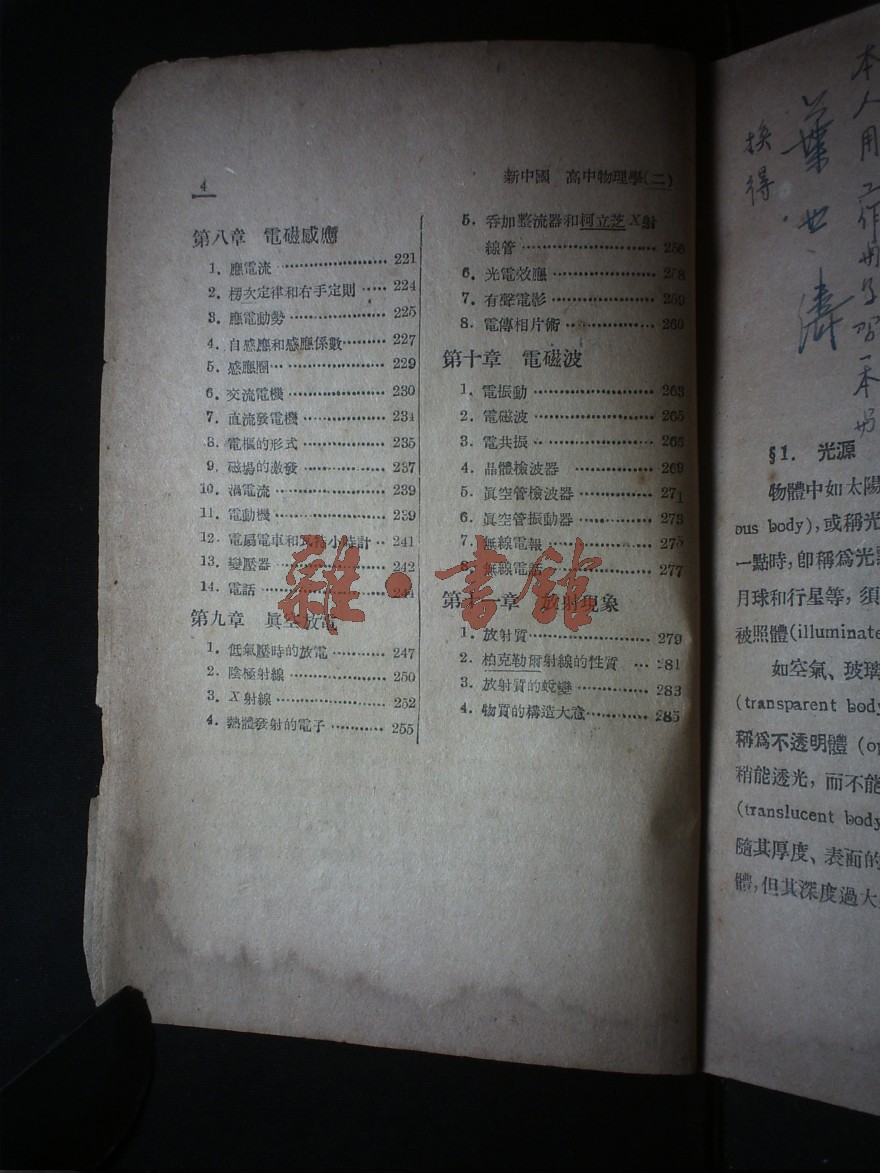 4
新中國 高中物理學(二)
第八章 電磁感應
1. 應電流 221
2. 楞次定律和右手定則 224
3. 應電動勢 225
4. 自感應和感應係數 227
5. 感應圈 229
6. 交流電機 230
7. 直流發電機 234
8. 電樞的形式 235
9. 磁場的激發 237
10. 渦電流 239
11. 電動機 239
12. 電扇電車和瓦特小時計 241
13. 變壓器 242
14. 電話 244
第九章 眞空放電
1. 低氣壓時的放電 247
2. 陰極射線 250
3. X射線 252
4. 熱體發射的電子 255
5. 吞加整流器和柯立芝X射
線管 256
6. 光電效應 258
7. 有聲電影 259
8. 電傳相片術 260
第十章 電磁波
1. 電振動 263
2. 電磁波 265
3. 電共振 266
4. 晶體檢波器 269
5. 眞空管檢波器 271
6. 眞空管振動器 273
7. 無線電報 275
8. 無線電話 277
第十一章 放射現象
1. 放射質 279
2. 柏克勒爾射線的性質 281
3. 放射質的蛻變 283
4. 物質的構造大意 285
雜·書館
本人用
換得
§1. 光源
物體中如太陽
ous body),或稱光
一點時,卽稱爲光
月球和行星等,須
被照體(illuminate
如空氣、玻璃
(transparent body
稱爲不透明體 (op
稍能透光,而不能
(translucent body
隨其厚度、表面的
體,但其深度過大